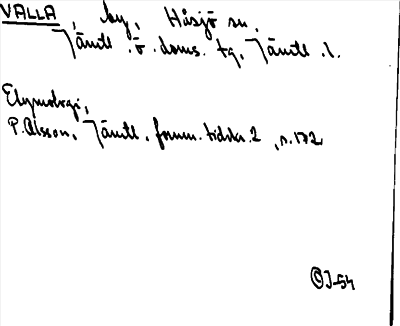 VALLA, by, Håsjö sn.
Jämtl. ö. doms. tg, Jämtl. l.
Etymologi;
P. Olsson, Jämtl. fornm. tidskr. 2, s. 172